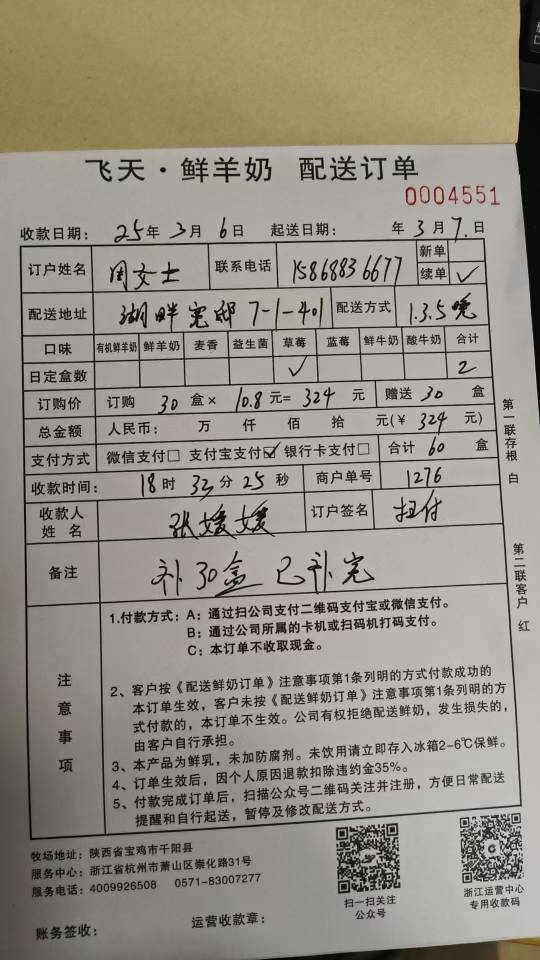 飞天·鲜羊奶 配送订单
0004551
收款日期： 25年 3月 6日 起送日期： 年 3月 7日
订户姓名 周女士 联系电话 15868836677 新单
续单 ✓
配送地址 湖畔宽邸 7-1-401 配送方式 1.3.5晚
口味 有机鲜羊奶 鲜羊奶 麦香 益生菌 草莓 蓝莓 鲜牛奶 酸牛奶 合计
日定盒数 ✓ 2
订购价 订购 30 盒× 10.8 元= 324 元 赠送 30 盒
总金额 人民币： 万 仟 佰 拾 元(¥ 324 元)
支付方式 微信支付□ 支付宝支付☑ 银行卡支付□ 合计 60 盒
收款时间： 18时 33分 25秒 商户单号 1276
收款人
姓 名 张媛媛 订户签名 扫付
备注 补30盒 已补完
第一联存根 白
第二联客户 红
注意事项
1.付款方式：A：通过扫公司支付二维码支付宝或微信支付。
B：通过公司所属的卡机或扫码机打码支付。
C：本订单不收取现金。
2、客户按《配送鲜奶订单》注意事项第1条列明的方式付款成功的
本订单生效，客户未按《配送鲜奶订单》注意事项第1条列明的方
式付款的，本订单不生效。公司有权拒绝配送鲜奶，发生损失的，
由客户自行承担。
3、本产品为鲜乳，未加防腐剂。未饮用请立即存入冰箱2-6℃保鲜。
4、订单生效后，因个人原因退款扣除违约金35%。
5、付款完成订单后，扫描公众号二维码关注并注册，方便日常配送
提醒和自行起送，暂停及修改配送方式。
牧场地址：陕西省宝鸡市千阳县
服务中心：浙江省杭州市萧山区崇化路31号
服务电话：4009926508 0571-83007277
扫一扫关注
公众号
浙江运营中心
专用收款码
账务签收： 运营收款章：